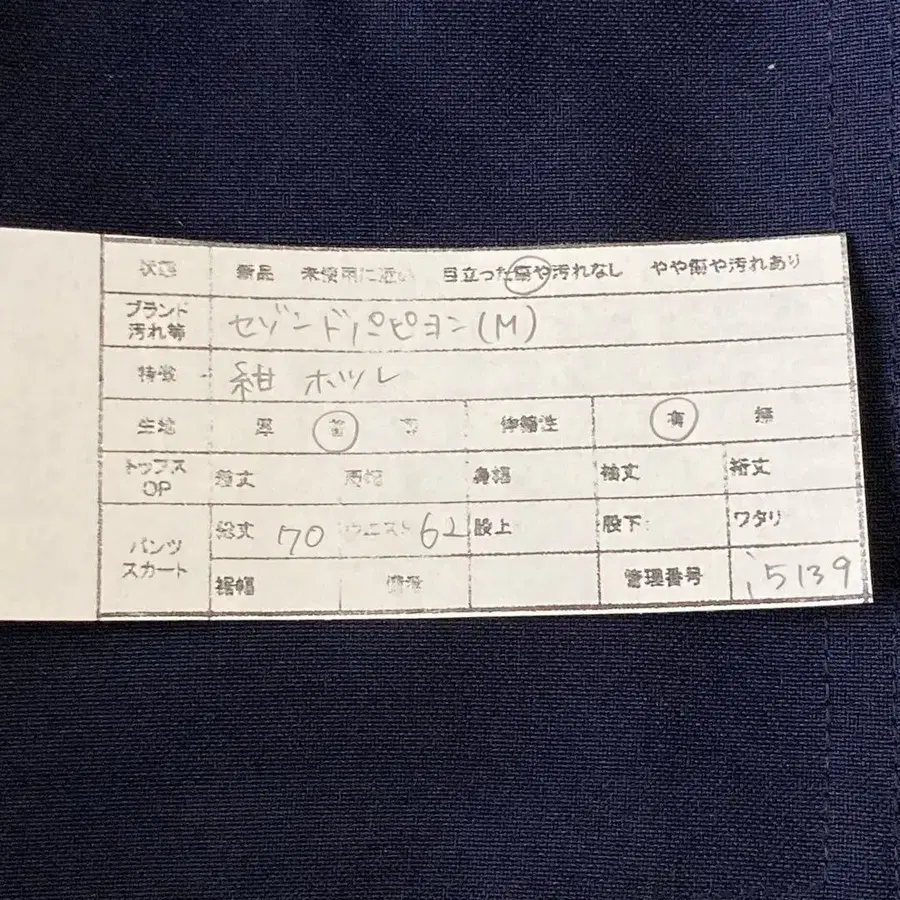 状態 新品 未使用に近い 目立った傷や汚れなし やや傷や汚れあり
ブランド
汚れ等 セゾンドパピヨン(M)
特徴 紺 ホツレ
生地 厚 普 伸縮性 有 無
トップス
OP 着丈 肩幅 身幅 袖丈 裄丈
パンツ
スカート 総丈 70 ウエスト 62 股上 股下 ワタリ
裾幅 管理番号 i5139